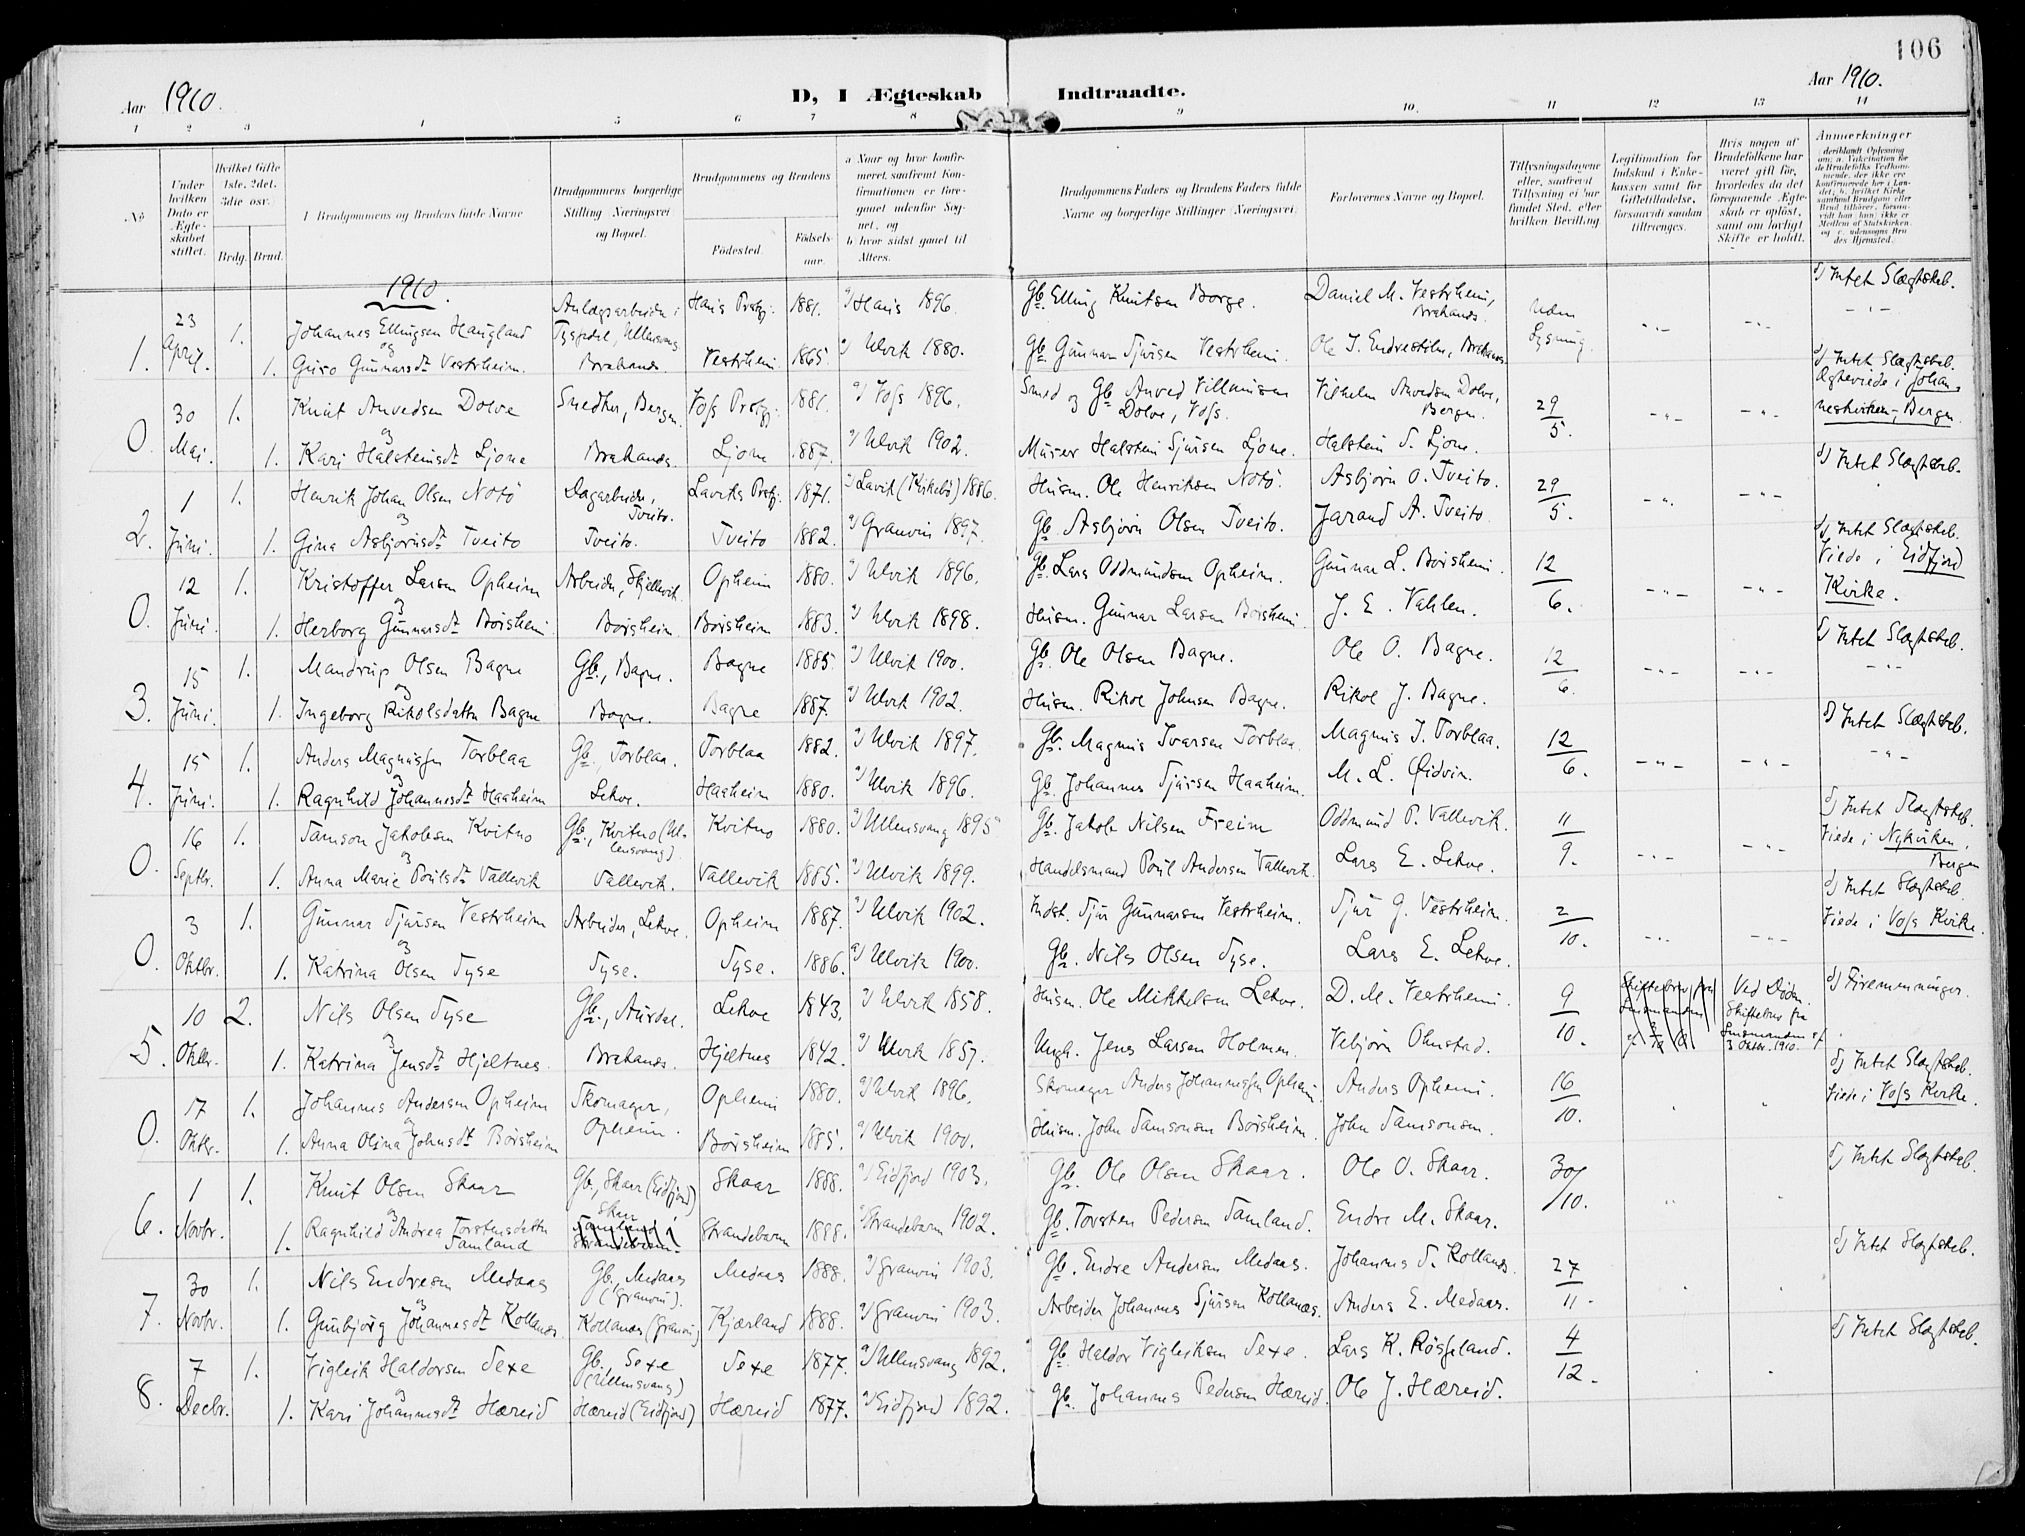 106
Aar 1910.
D, I Ægteskab Indtraadte.
Aar 1910.
1 2 3 4 5 6 7 8 9 10. 11 12 13 14
No
Under hvilken Dato er Ægteskabet stiftet.
Hvilket Gifte 1ste, 2det, 3die osv.
Brdg. Brud.
Brudgommens og Brudens fulde Navne
Brudgommens borgerlige Stilling Næringsvei og Bopæl.
Brudgommens og Brudens
Fødested.
Fødsels-aar.
a Naar og hvor konfirmeret, saafremt Konfirmationen er foregaaet udenfor Sognet, og
b hvor sidst gaaet til Alters.
Brudgommens Faders og Brudens Faders fulde Navne og borgerlige Stillinger (Næringsvei)
Forlovernes Navne og Bopæl.
Tillysningsdagene eller, saafremt Tillysning ei har fundet Sted, efter hvilken Bevilling
Legitimation for Indskud i Enkekassen samt for Giftetilladelse, forsaavidt saadan tiltrænges.
Hvis nogen af Brudefolkene har været gift før, hvorledes da det foregaaende Ægteskab er opløst, samt om lovligt Skifte er holdt.
Anmærkninger
1910.
1. 23 April. 1. Johannes Ellingsen Haugland Anlægsarbeider i Tyssedal, Ullensvang Haus Prstgj. 1881. a) Haus 1896. Gb. Elling Knutsen Borge. Daniel M. Vestrheim, Brakanes. Uden Lysning. -"- -"- d) Intet Slægtskab.
og
1. Guro Gunnarsdt Vestrheim. Brakanes. Vestrheim 1865. a) Ulvik 1880. Gb. Gunnar Sjursen Vestrheim. Ole J. Endrestölen, Brakanes. -"-
0. 30 Mai. 1. Knut Anvedsen Dolve Snedker, Bergen. Voss Prstgj. 1881. a) Voss 1896. Smed og Gb. Anved Villumsen Dolve, Voss. Vilhelm Anvedsen Dolve, Bergen. 29/5. -"- -"- d) Intet Slægtskab. Ægteviede i Johanneskirken, Bergen.
og
1. Kari Halsteinsdt Ljone Brakanes. Ljone 1887. a) Ulvik 1902. Murer Halstein Sjursen Ljone. Halstein S. Ljone.
2. 1 Juni. 1. Henrik Johan Olsen Notö Dagarbeider, Tveito. Laviks Prstgj. 1871. a) Lavik (Kirkebö) 1886. Husm. Ole Henriksen Notö. Asbjörn O. Tveito. 29/5. -"- -"- d) Intet Slægtskab.
og
1. Gina Asbjornsdt Tveito Tveito. Tveito 1882. a) Granvin 1897. Gb. Asbjörn Olsen Tveito. Jarand A. Tveito.
0. 12 Juni. 1. Kristoffer Larsen Opheim Arbeider, Skjellevik. Opheim 1880. a) Ulvik 1896. Gb. Lars Oddmundsen Opheim. Gunnar L. Börsheim. 12/6. -"- -"- d) Intet Slægtskab. Viede i Eidfjord Kirke.
og
1. Herborg Gunnarsdt Börsheim Börsheim. Börsheim 1883. a) Ulvik 1898. Husm. Gunnar Larsen Börsheim. J. E. Vahlen.
3. 15 Juni. 1. Mandrup Olsen Bagne Gb., Bagne. Bagne 1885. a) Ulvik 1900. Gb. Ole Olsen Bagne. Ole O. Bagne. 12/6. -"- -"- d) Intet Slægtskab. -"-
og
1. Ingeborg Rikolsdatter Bagne Bagne. Bagne 1887. a) Ulvik 1902. Husm. Rikol Johnsen Bagne. Rikol J. Bagne.
4. 15 Juni. 1. Anders Magnussen Torblaa Gb., Torblaa. Torblaa 1882. a) Ulvik 1897. Gb. Magnus Ivarsen Torblaa. Magnus I. Torblaa. 12/6. -"- -"- d) Intet Slægtskab. -"-
og
1. Ragnhild Johannesdt Haaheim Lekve. Haaheim 1880. a) Ulvik 1896. Gb. Johannes Sjursen Haaheim. M. L. Öidvin.
0. 16 Septbr. 1. Samson Jakobsen Kvitno Gb., Kvitno (Ullensvang). Kvitno 1880. a) Ullensvang 1895 Gb. Jakob Nilsen Freim Oddmund P. Vallevik. 11/9. -"- -"- d) Intet Slægtskab. Viede i Nykirken, Bergen
og
1. Anna Marie Poulsdt Vallevik Vallevik. Vallevik 1885. a) Ulvik 1899. Handelsmand Poul Andersen Vallevik. Lars E. Lekve.
0. 3 Oktbr. 1. Gunnar Sjursen Vestrheim Arbeider, Lekve. Opheim 1887. a) Ulvik 1902. Indst. Sjur Gunnarsen Vestrheim. Sjur G. Vestrheim. 2/10. -"- -"- d) Intet Slægtskab. Viede i Voss Kirke.
og
1. Katrina Olsen Syse Syse. Syse. 1886. a) Ulvik 1900. Gb. Nils Olsen Syse. Lars E. Lekve.
5. 10 Oktbr. 2. Nils Olsen Syse Gb., Aurdal. Lekve 1843. a) Ulvik 1858. Husm. Ole Mikkelsen Lekve. D. M. Vestrheim. 9/10. Ved Döden. Skiftebrev fra Lensmanden af 3 Oktbr. 1910. d) Firemenninger.
og
1. Katrina Jensdt Hjeltnes. Brakanes. Hjeltnes 1842. a) Ulvik 1857. Ungk. Jens Larsen Holmen. Vebjörn Olmstad.
0. 17 Oktbr. 1. Johannes Andersen Opheim Skomager, Opheim. Opheim 1880. a) Ulvik 1896. Skomager Anders Johannessen Opheim. Anders Opheim. 16/10. " " d) Intet Slægtskab. Viede i Voss Kirke.
og
1. Anna Olina Johnsdt Börsheim Börsheim 1885. a) Ulvik 1900. Husm. John Samsonsen Börsheim. John Samsonsen.
6. 1 Novbr. 1. Knut Olsen Skaar Gb., Skaar (Eidfjord) Skaar 1888. a) Eidfjord 1903. Gb. Ole Olsen Skaar. Ole O. Skaar. 30/10. " " d) Intet Slægtskab.
og
1. Ragnhild Andrea Torstensdatter Samland Skaar Strandebarm 1888. a) Strandebarm 1902. Gb. Torsten Pedersen Samland. Endre M. Skaar.
7. 30 Novbr. 1. Nils Endresen Medaas Gb., Medaas (Granvin). Medaas 1888. a) Granvin 1903. Gb. Endre Andersen Medaas. Johannes S. Kollanæs. 27/11. " " d) Intet Slægtskab.
og
1. Gunbjörg Johannesdt Kollanæs. Kollanæs (Granvin) Kjærland 1888. a) Granvin 1903. Arbeider Johannes Sjursen Kollanæs. Anders E. Medaas.
8. 7 Decbr. 1. Vigleik Haldorsen Sexe Gb., Sexe (Ullensvang) Sexe 1877. a) Ullensvang 1892. Gb. Haldor Vigleiksen Sexe. Lars K. Röseland. 4/12. " " d) Intet Slægtskab.
og
1. Kari Johannesdt Hæreid Hæreid (Eidfjord) Hæreid 1877. a) Eidfjord 1892. Gb. Johannes Pedersen Hæreid. Ole J. Hæreid.